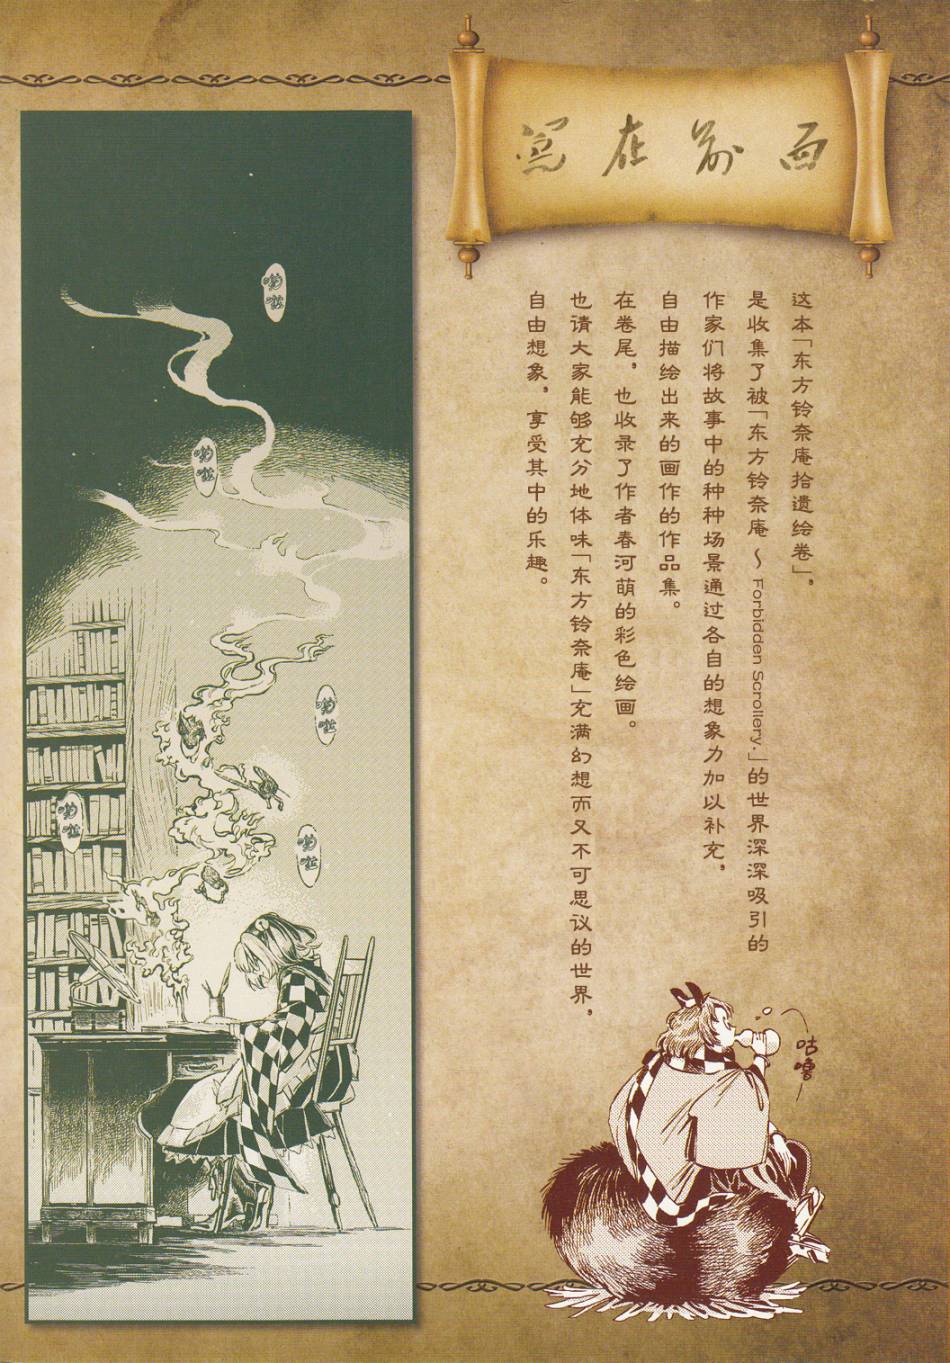 写在前面
这本「东方铃奈庵拾遗绘卷」，
是收集了被「东方铃奈庵 ～ Forbidden Scrollery.」的世界深深吸引的
作家们将故事中的种种场景通过各自的想象力加以补充，
自由描绘出来的画作的作品集。
在卷尾，也收录了作者春河萌的彩色绘画。
也请大家能够充分地体味「东方铃奈庵」充满幻想而又不可思议的世界，
自由想象，享受其中的乐趣。
咕噜